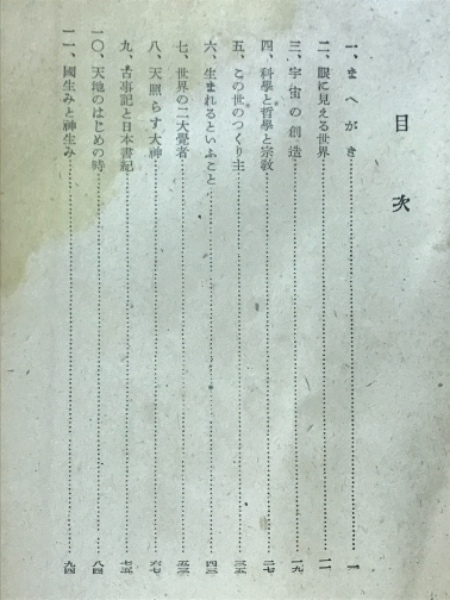 目次
一、まへがき……一
二、眼に見える世界……一一
三、宇宙の創造……一九
四、科學と哲學と宗敎……二七
五、この世のつくり主……三五
六、生まれるといふこと……四三
七、世界の二大覺者……五三
八、天照らす大神……六七
九、古事記と日本書紀……七五
一〇、天地のはじめの時……八四
一一、國生みと神生み……九四